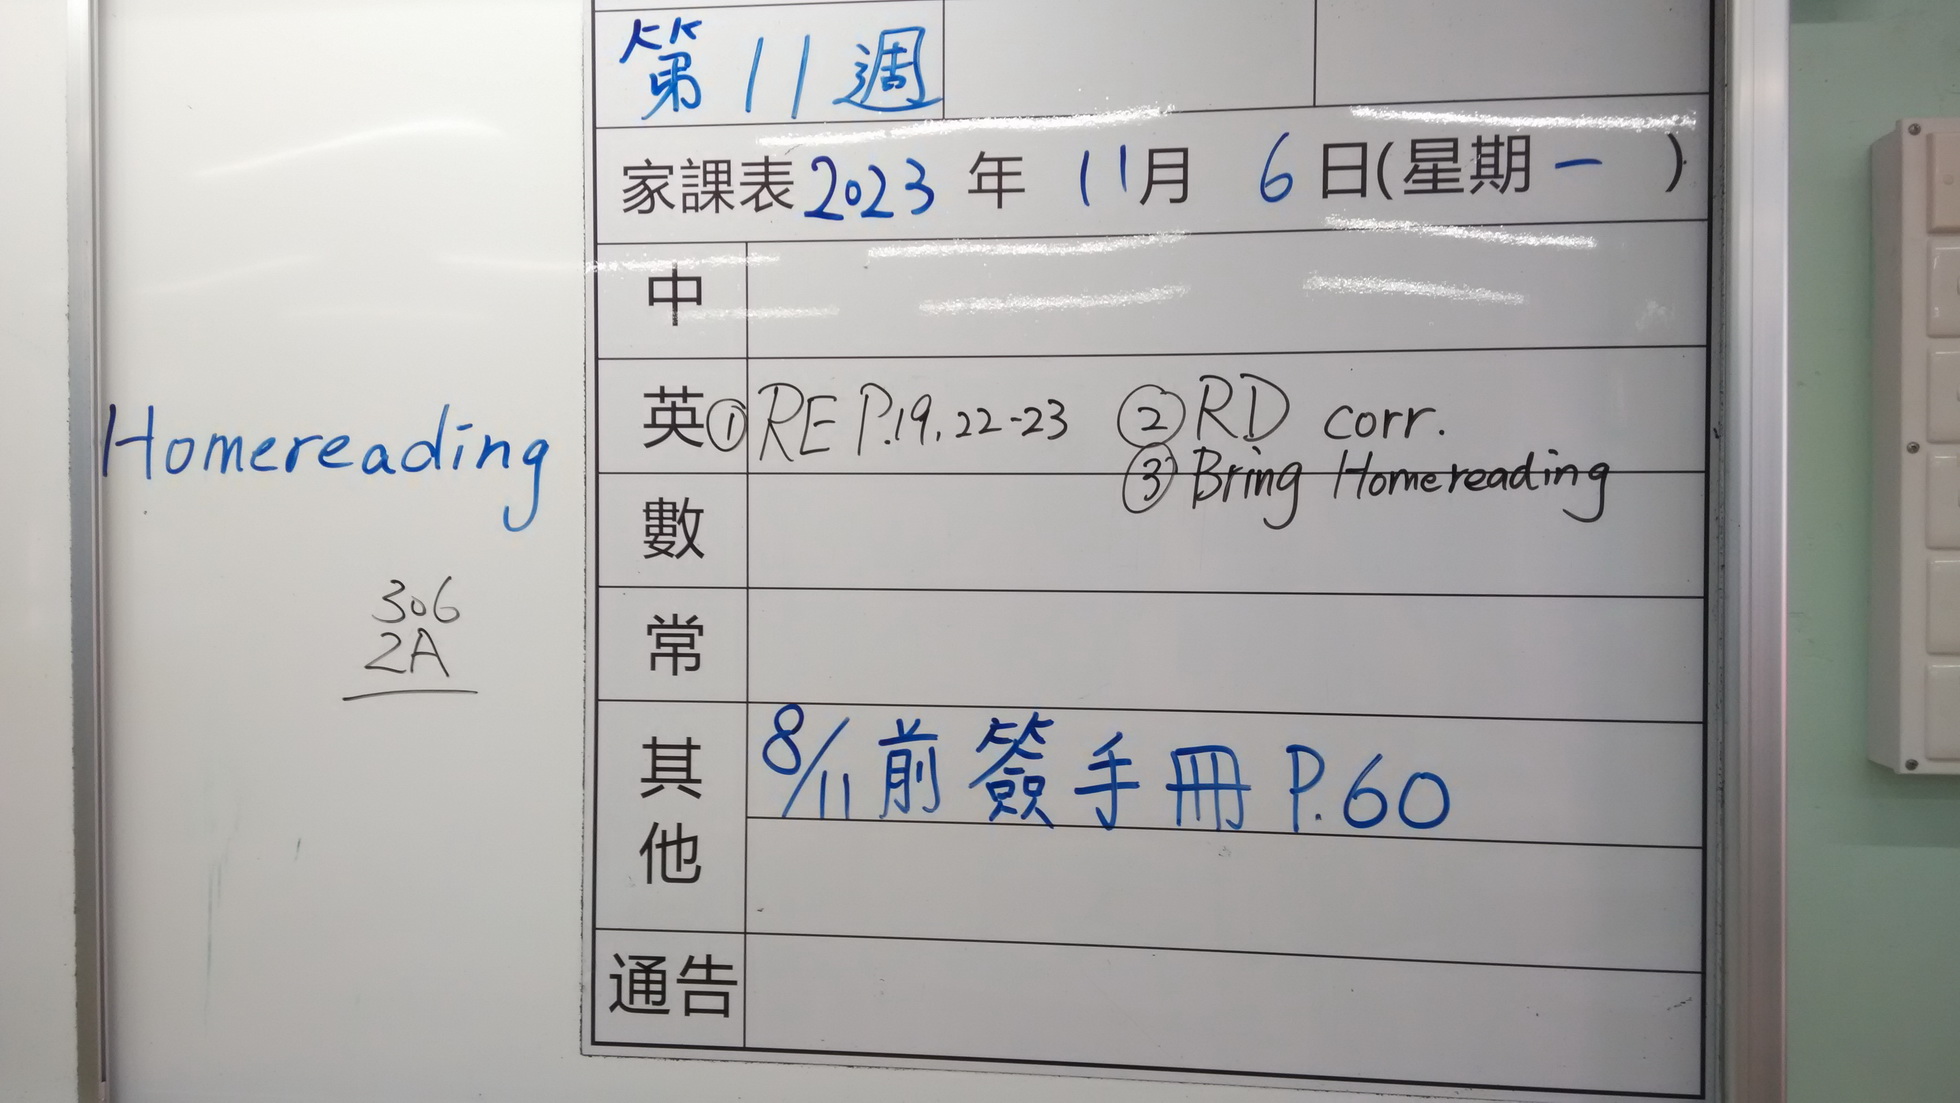 第11週
家課表2023年11月6日(星期一)
中
英 ①RE P.19,22-23 ②RD corr.
③Bring Homereading
數
常
其他 8/11前簽手冊P.60
通告
Homereading
306
2A